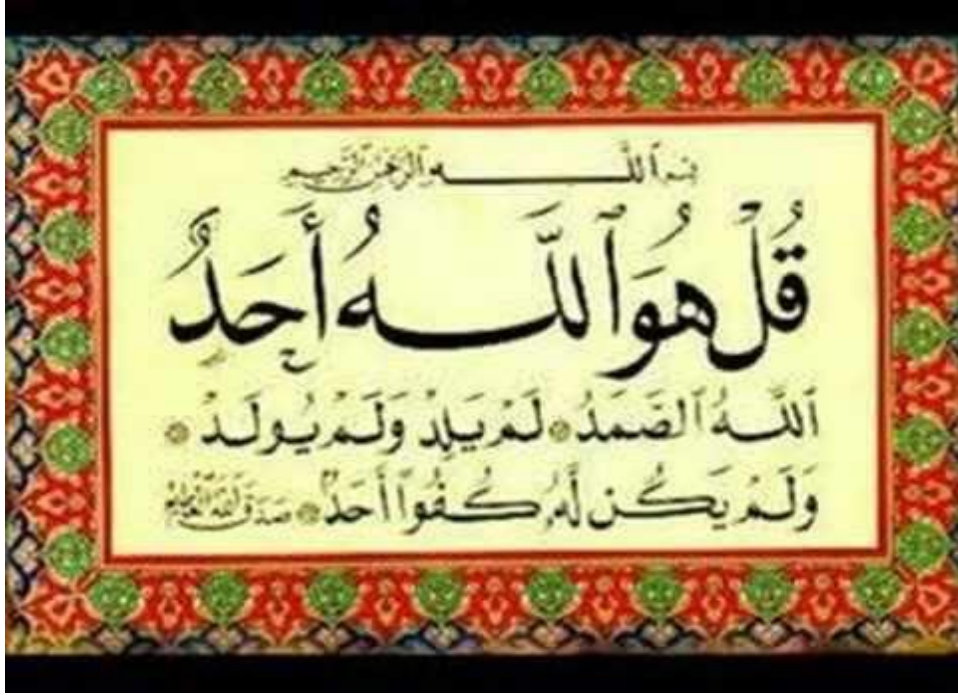 بِسْمِ ٱللَّهِ ٱلرَّحْمَٰنِ ٱلرَّحِيمِ
قُلْ هُوَ ٱللَّهُ أَحَدٌ
ٱللَّهُ ٱلصَّمَدُ * لَمْ يَلِدْ وَلَمْ يُولَدْ *
وَلَمْ يَكُن لَّهُۥ كُفُوًا أَحَدٌ * صدق الله العظيم